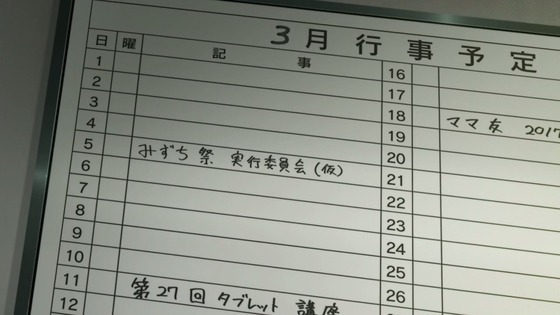 3月行事予定
日 曜 記事
1
2
3
4
5 みずち祭 実行委員会(仮)
6
7
8
9
10
11 第27回 タブレット 講座
12
16
17
18 ママ友 2017
19
20
21
22
23
24
25
26